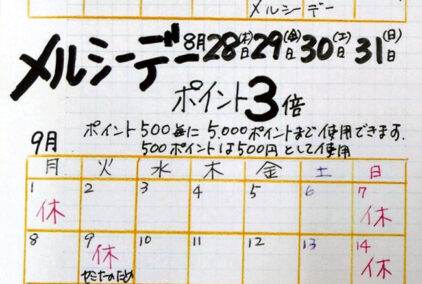 メルシーデー
メルシーデー 8月28(木)日29(金)日30(土)日31(日)日
ポイント3倍
9月 ポイント500毎に5,000ポイントまで使用できます。
500ポイントは500円として使用
月 火 水 木 金 土 日
1 2 3 4 5 6 7
休 休
8 9 10 11 12 13 14
休 休
セミナーのため